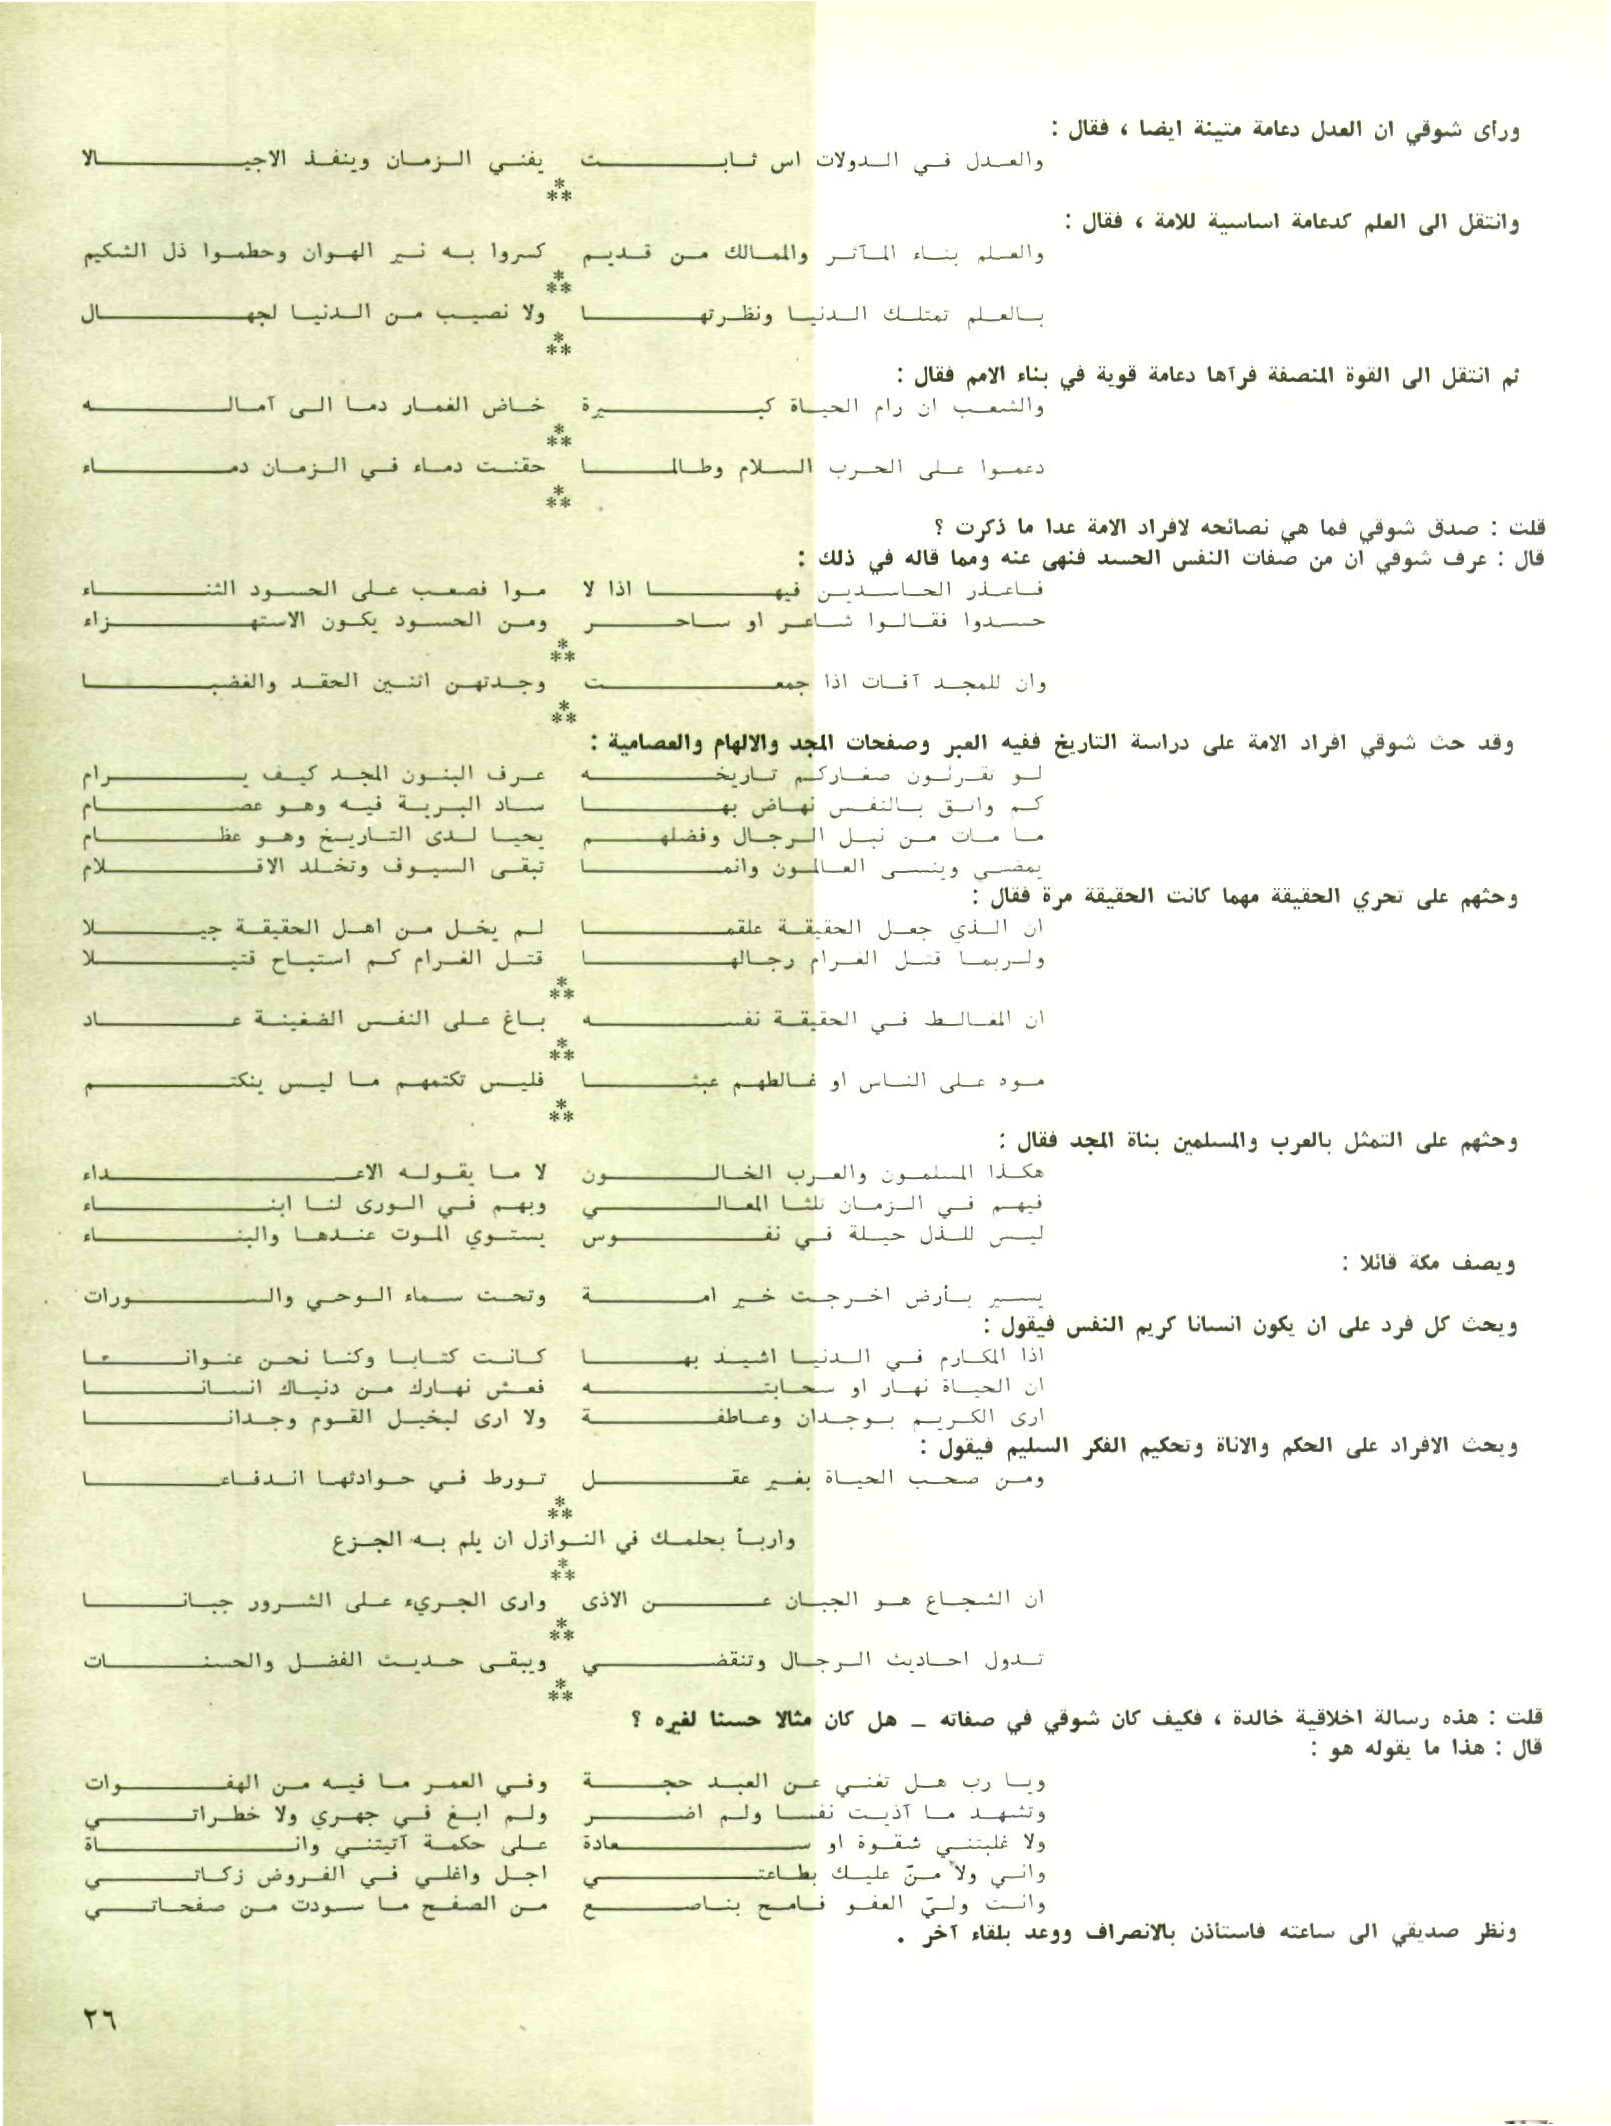 ورأى شوقي ان العدل دعامة متينة ايضا ، فقال :
والعدل في الدولات اس ثابت يفني الزمان وينفذ الاجيالا
***
وانتقل الى العلم كدعامة اساسية للامة ، فقال :
والعلم بناء المآثر والممالك من قديم كسروا به نير الهوان وحطموا ذل الشكيم
***
بالعلم تمتلك الدنيا ونظرتها ولا نصيب من الدنيا لجهال
***
ثم انتقل الى القوة المنصفة فرآها دعامة قوية في بناء الامم فقال :
والشعب ان رام الحياة كبيرة خاض الغمار دما الى آماله
***
دعموا على الحرب السلام وطالما حقنت دماء في الزمان دماء
***
قلت : صدق شوقي فما هي نصائحه لافراد الامة عدا ما ذكرت ؟
قال : عرف شوقي ان من صفات النفس الحسد فنهى عنه ومما قاله في ذلك :
فاعذر الحاسدين فيها اذا لا موا فصعب على الحسود الثناء
حسدوا فقالوا شاعر او ساحر ومن الحسود يكون الاستهزاء
***
وان للمجد آفات اذا جمعت وجدتهن اثنين الحقد والغضبا
***
وقد حث شوقي افراد الامة على دراسة التاريخ ففيه العبر وصفحات المجد والالهام والعصامية :
لو تقرئون صغاركم تاريخه عرف البنون المجد كيف يرام
كم واثق بالنفس نهاض بها ساد البرية فيه وهو عصام
ما مات من نبل الرجال وفضلهم يحيا لدى التاريخ وهو عظام
يمضي وينسى العالمون وانما تبقى السيوف وتخلد الاقلام
وحثهم على تحري الحقيقة مهما كانت الحقيقة مرة فقال :
ان الذي جعل الحقيقة علقما لم يخل من اهل الحقيقة جيلا
ولربما قتل الغرام رجالها قتل الغرام كم استباح قتيلا
***
ان المغالط في الحقيقة نفسه باغ على النفس الضغينة عاد
***
موه على الناس او غالطهم عبثا فليس تكتمهم ما ليس ينكتم
***
وحثهم على التمثل بالعرب والمسلمين بناة المجد فقال :
هكذا المسلمون والعرب الخالون لا ما يقوله الاعداء
فيهم في الزمان نلنا المعالي وبهم في الورى لنا ابناء
ليس للذل حيلة في نفوس يستوي الموت عندها والبناء
ويصف مكة قائلا :
يسير بأرض اخرجت خير امة وتحت سماء الوحي والسورات
ويحث كل فرد على ان يكون انسانا كريم النفس فيقول :
اذا المكارم في الدنيا اشيد بها كانت كتابا وكنا نحن عنوانا
ان الحياة نهار او سحابته فعش نهارك من دنياك انسانا
ارى الكريم بوجدان وعاطفة ولا ارى لبخيل القوم وجدانا
ويحث الافراد على الحكم والاناة وتحكيم الفكر السليم فيقول :
ومن صحب الحياة بغير عقل تورط في حوادثها اندفاعا
***
واربأ بحلمك في النوازل ان يلم به الجزع
***
ان الشجاع هو الجبان عن الاذى وارى الجريء على الشرور جبانا
***
تدول احاديث الرجال وتنقضي ويبقى حديث الفضل والحسنات
***
قلت : هذه رسالة اخلاقية خالدة ، فكيف كان شوقي في صفاته ـ هل كان مثالا حسنا لغيره ؟
قال : هذا ما يقوله هو :
ويا رب هل تغني عن العبد حجة وفي العمر ما فيه من الهفوات
وتشهد ما آذيت نفسا ولم اضر ولم ابغ في جهري ولا خطراتي
ولا غلبتني شقوة او سعادة على حكمة آتيتني واناة
واني ولا منّ عليك بطاعتي اجل واغلي في الفروض زكاتي
وانت وليّ العفو فامح بناصع من الصفح ما سودت من صفحاتي
ونظر صديقي الى ساعته فاستأذن بالانصراف ووعد بلقاء آخر .
٢٦